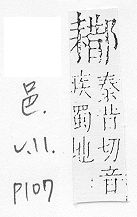 秦昔切音
疾蜀地
邑.
V.11.
P107